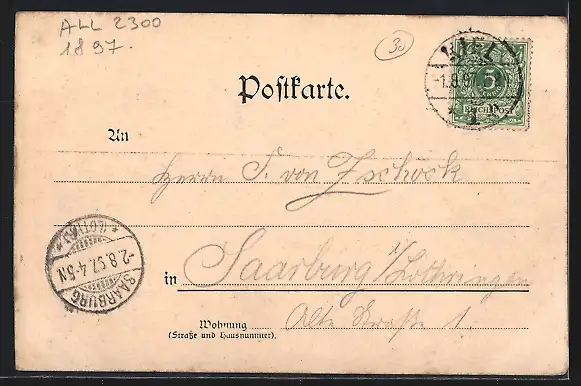 ALL 2300
1897.
30
Postkarte.
KIEL
-1.8.97
* 1 *
5
REICHSPOST
An
Herrn F. von Zschock
in Saarburg i/Lothringen
Wohnung Alte Straße 1.
(Straße und Hausnummer).
* (LOTHR) *
-2.8.97.4-5N
SAARBURG